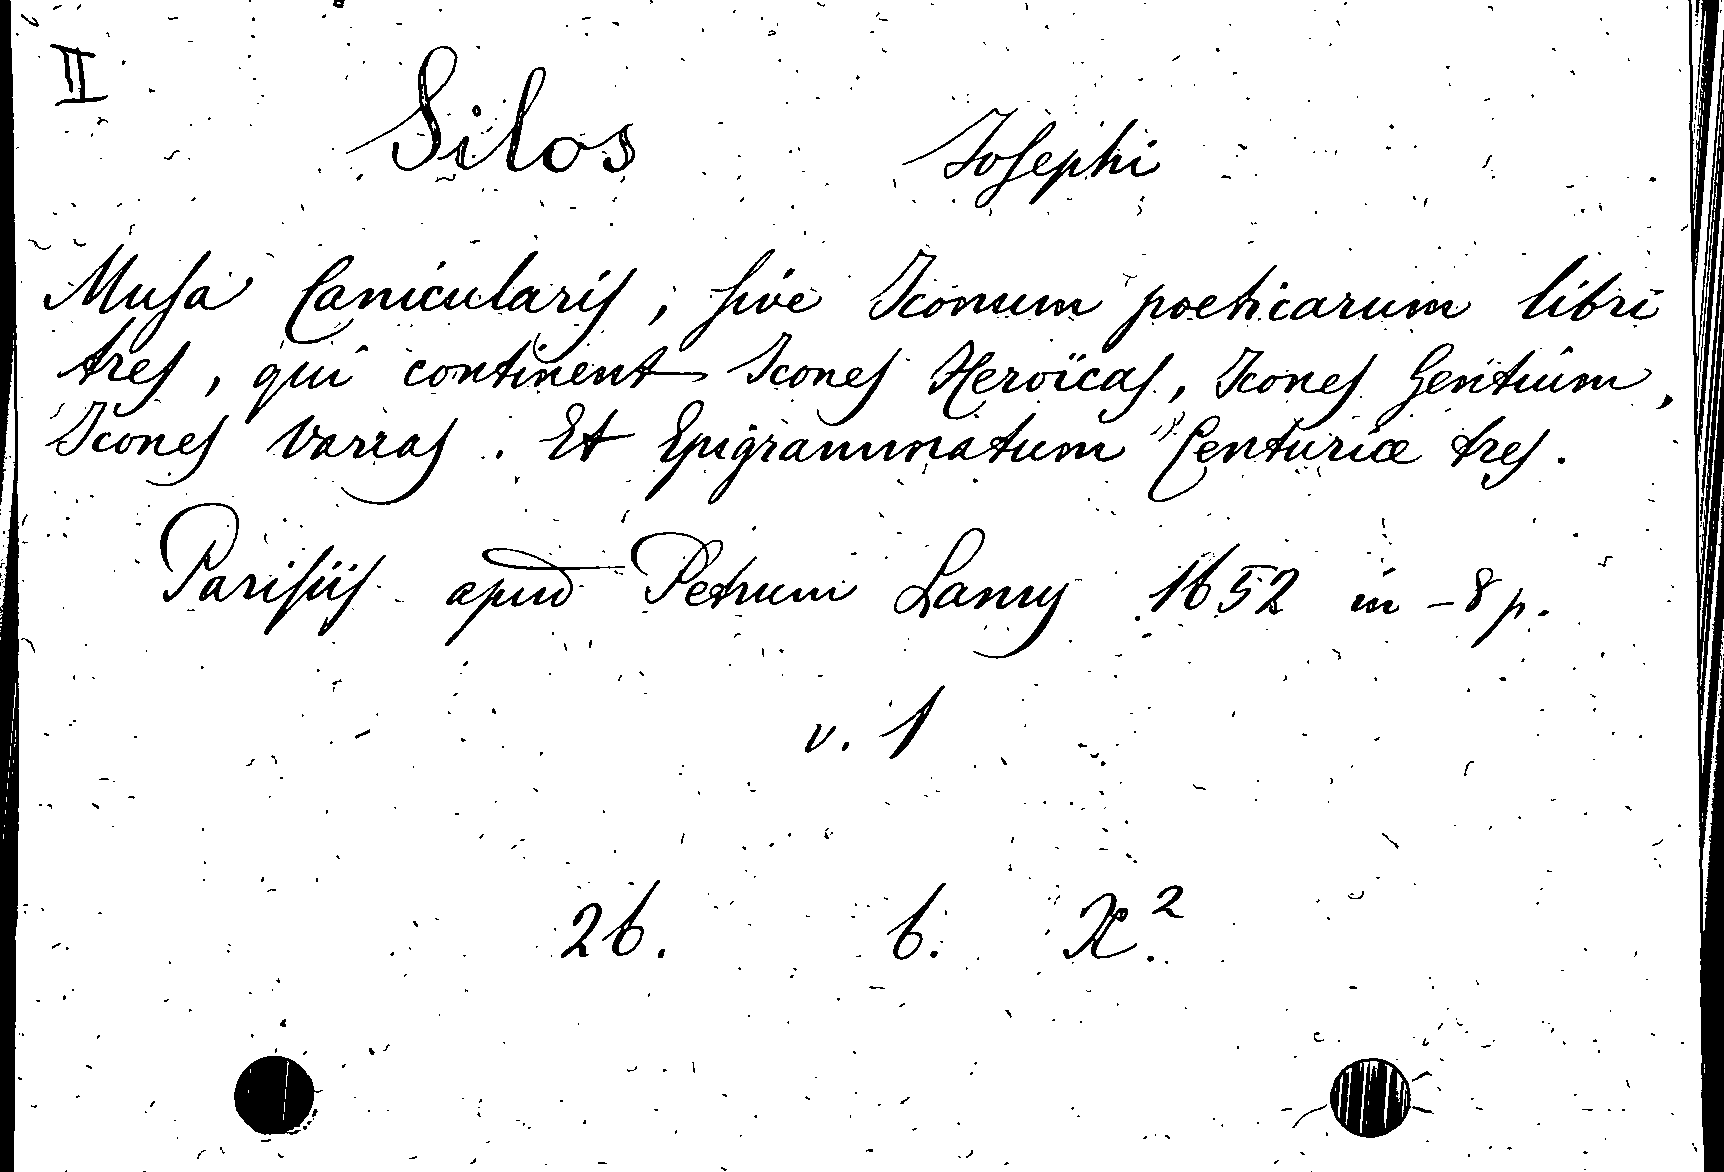 II
Silos Iosephi
Musa Canicularis, sive Iconum poeticarum libri
tres, qui continent Icones Heroïcas, Icones Gentium,
Icones Varias. Et Epigrammatum Centuriæ tres.
Parisiis apud Petrum Lamy 1652 in-8 p.
v. 1
26. 6. X.²